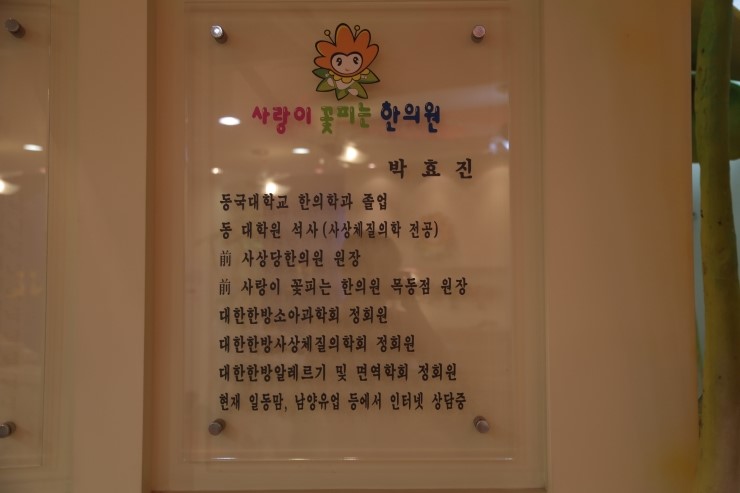 사랑이 꽃피는 한의원
박효진
동국대학교 한의학과 졸업
동 대학원 석사(사상체질의학 전공)
前 사상당한의원 원장
前 사랑이 꽃피는 한의원 목동점 원장
대한한방소아과학회 정회원
대한한방사상체질의학회 정회원
대한한방알레르기 및 면역학회 정회원
현재 일동맘, 남양유업 등에서 인터넷 상담중